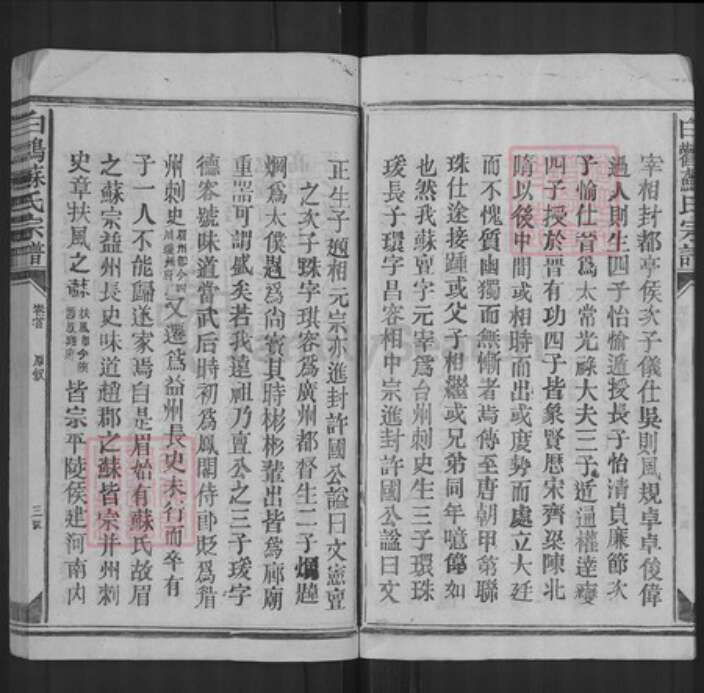 宰相封都亭侯次子儀仕吳則風規卓卓俊偉
過人則生四子怡愉遁授長子怡清貞廉節次
子愉仕晉爲太常光祿大夫三子遁通權達變
四子授於晋有功四子皆象賢歷宋齊梁陳北
隋以後中間或相時而出或度勢而處立大廷
而不愧質幽獨而無慚者焉傳至唐朝甲第聯
珠仕途接踵或父子相繼或兄弟同年噫偉如
也然我蘇亶字元宰爲台州刺史生三子環珠
瑗長子環字昌容相中宗進封許國公謚曰文
正生子頲相元宗亦進封許國公謚曰文憲亶
之次子珠字琪客爲廣州都督生二子爛韙
爛爲太僕韙爲尙寳其時彬彬輩出皆爲廊廟
重器可謂盛矣若我遠祖乃亶公之三子瑗字
德容號味道當武后時初爲鳳閣侍郎貶爲眉
州刺史眉州卽今四川眉州府又遷爲益州長史未行而卒有
子一人不能歸遂家焉自是眉始有蘇氏故眉
之蘇宗益州長史味道趙郡之蘇皆宗并州刺
史章扶風之蘇扶風卽今陝西鳳翔府皆宗平陵侯建河南內
白鶴蘇氏宗譜
卷首
原叙
三
白鶴蘇氏宗譜